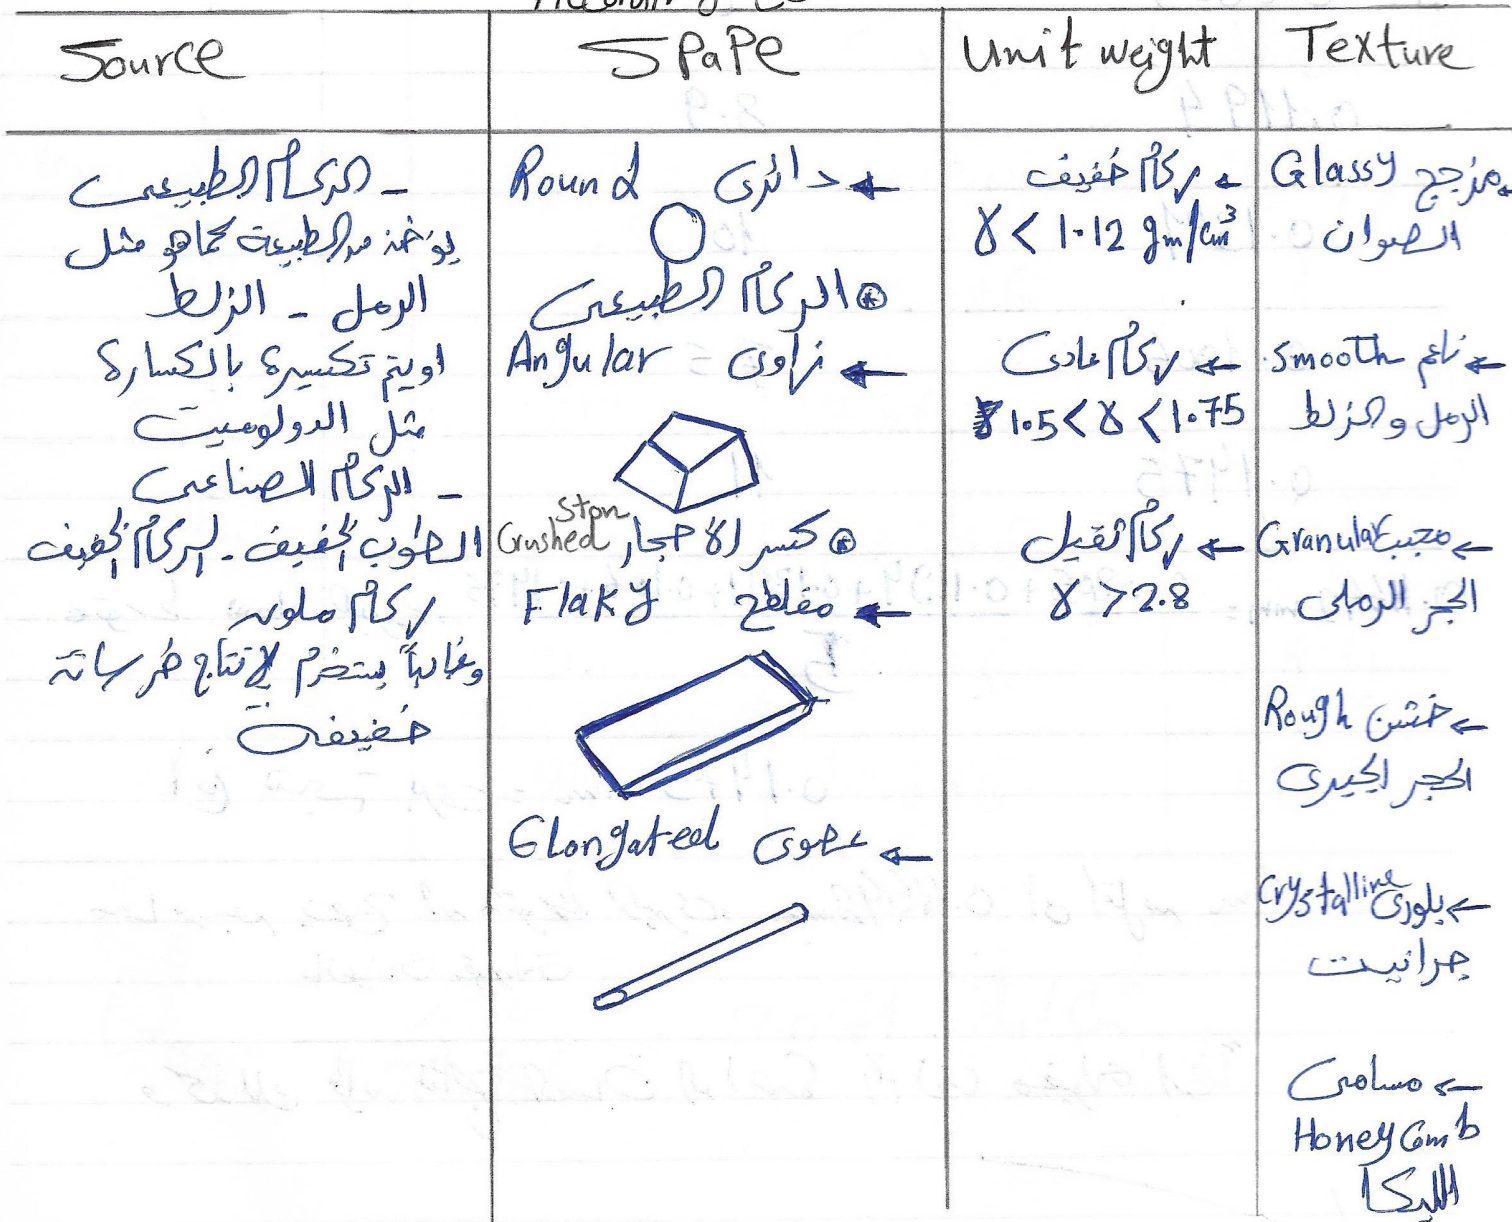 Source
SPaPe
Unit weight
Texture
- الركام الطبيعى
يؤخذ من الطبيعة كما هو مثل
الرمل - الزلط
او يتم تكسيرة بالكسارة
مثل الدولوميت
- الركام الصناعى
الطوب الخفيف - الركام الخفيف
ركام ملون
وغالباً يستخدم لإنتاج خرسانة
خفيفة
← دائرى Round
⊛ الركام الطبيعى
← زاوى Angular
⊛ كسر الأحجار Crushed Ston
← مفلطح Flaky
← عصوى Elongated
← ركام خفيف
γ < 1.12 gm/cm³
← ركام عادى
1.5 < γ < 1.75
← ركام ثقيل
γ > 2.8
← مزجج Glassy
الصوان
← ناعم smooth
الرمل والزلط
← محبب Granular
الحجر الرملى
← خشن Rough
الحجر الجيرى
← بلورى Crystalline
جرانيت
← مسامى
Honey Comb
الليكا